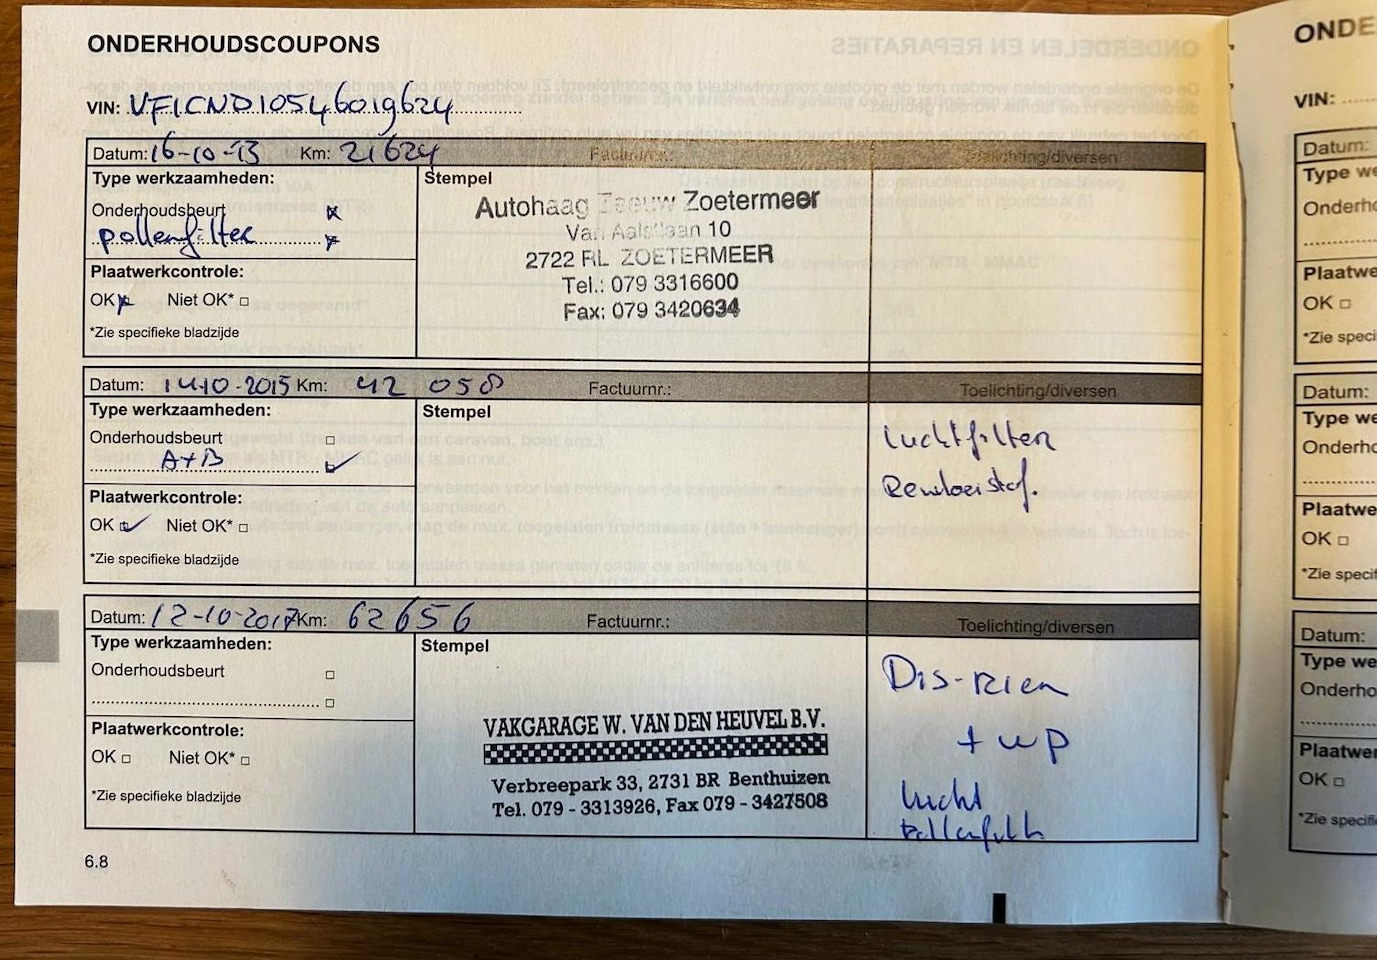 ONDERHOUDSCOUPONS
VIN: VF1CND10546019624
Datum: 16-10-13 Km: 21624 Factuurnr.: Toelichting/diversen
Type werkzaamheden:
Stempel
Onderhoudsbeurt
pollenfilter
Autohaag Zeeuw Zoetermeer
Van Aalstlaan 10
2722 RL ZOETERMEER
Tel.: 079 3316600
Fax: 079 3420634
Plaatwerkcontrole:
OK Niet OK*
*Zie specifieke bladzijde
Datum: 14-10-2015 Km: 42 058 Factuurnr.: Toelichting/diversen
Type werkzaamheden:
Stempel
Onderhoudsbeurt
A+B
luchtfilter
Remvloeistof.
Plaatwerkcontrole:
OK Niet OK*
*Zie specifieke bladzijde
Datum: 12-10-2017 Km: 62656 Factuurnr.: Toelichting/diversen
Type werkzaamheden:
Stempel
Onderhoudsbeurt
Dis-riem
+ wp
lucht
Pollenfilt
VAKGARAGE W. VAN DEN HEUVEL B.V.
Verbreepark 33, 2731 BR Benthuizen
Tel. 079 - 3313926, Fax 079 - 3427508
Plaatwerkcontrole:
OK Niet OK*
*Zie specifieke bladzijde
6.8
ONDE
VIN:
Datum:
Type we
Onderho
Plaatwe
OK
*Zie speci
Datum:
Type we
Onderho
Plaatwe
OK
*Zie specif
Datum:
Type we
Onderho
Plaatwer
OK
*Zie specifi